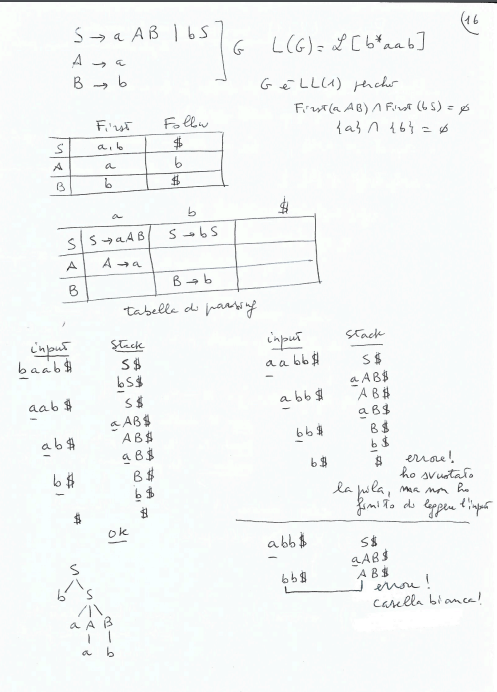 16
S → a AB | bS
A → a
B → b
G L(G) = L [b*aab]
G è LL(1) perché
First(aAB) ∩ First(bS) = ∅
{a} ∩ {b} = ∅
First Follow
S a,b $
A a b
B b $
a b $
S S → aAB S → bS
A A → a
B B → b
tabella di parsing
input stack
baab$ S$
bS$
aab$ S$
aAB$
ab$ AB$
aB$
b$ B$
b$
$ $
ok
S
b S
a A B
a b
input stack
aabb$ S$
aAB$
abb$ AB$
aB$
bb$ B$
b$
b$ $ errore!
ho svuotato
la pila, ma non ho
finito di leggere l'input
abb$ S$
aAB$
bb$ AB$
errore!
casella bianca!